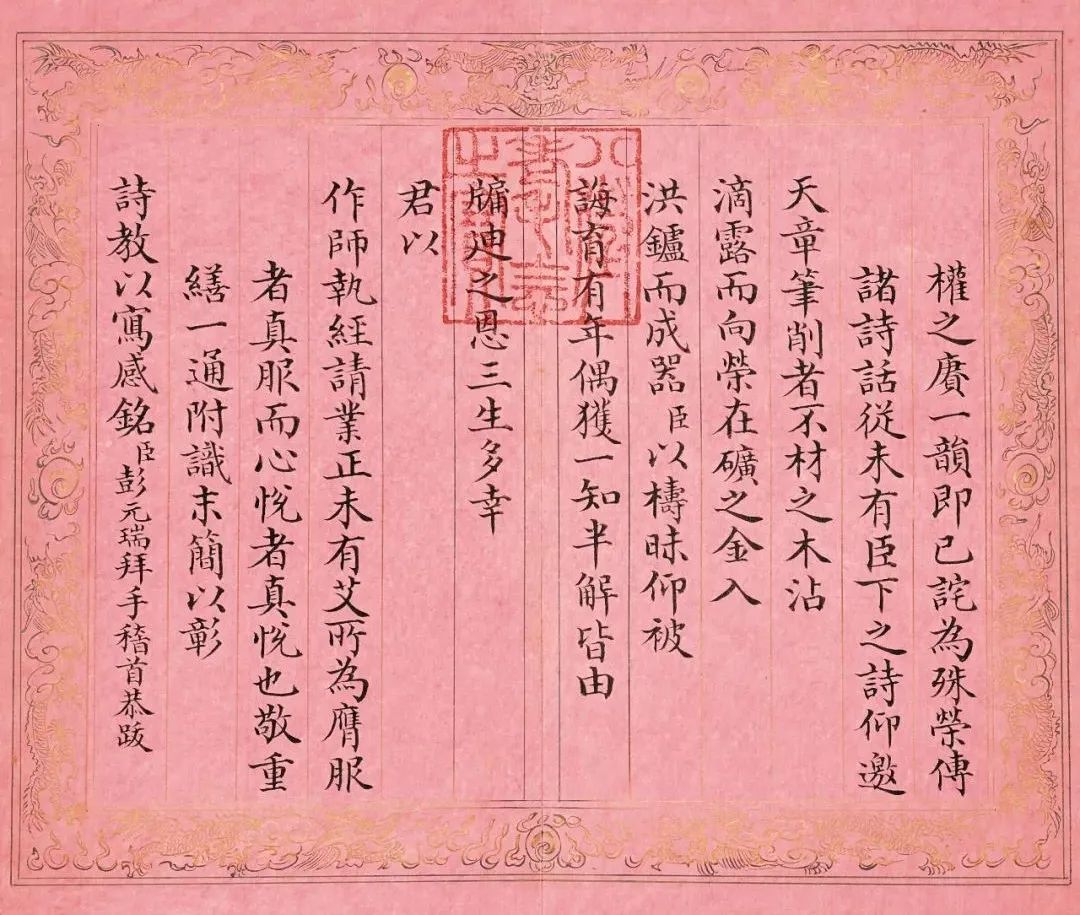 權之賡一韻即已詫為殊榮傳
諸詩話從未有臣下之詩仰邀
天章筆削者不材之木沾
滴露而向榮在礦之金入
洪鑪而成器臣以檮昧仰被
誨育有年偶獲一知半解皆由
牖迪之恩三生多幸
君以
作師執經請業正未有艾所為膺服
者真服而心悅者真悅也敬重
繕一通附識末簡以彰
詩教以寫感銘臣彭元瑞拜手稽首恭跋
八徵
耄念
之寶